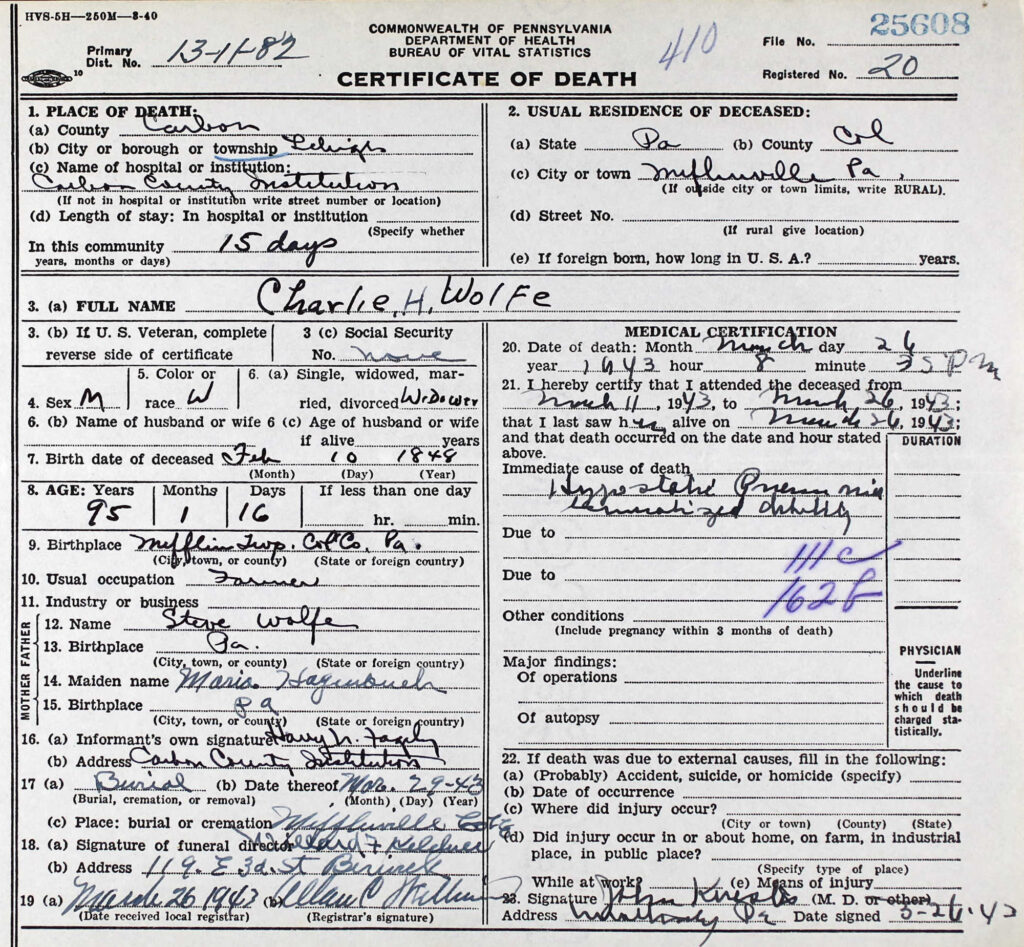 HVS-5H—250M—3-40
COMMONWEALTH OF PENNSYLVANIA
DEPARTMENT OF HEALTH
BUREAU OF VITAL STATISTICS
CERTIFICATE OF DEATH
Primary Dist. No. 13-11-82
410
File No. 25608
Registered No. 20
1. PLACE OF DEATH:
(a) County Carbon
(b) City or borough or township Lehigh
(c) Name of hospital or institution:
Carbon County Institution
(If not in hospital or institution write street number or location)
(d) Length of stay: In hospital or institution
(Specify whether
In this community 15 days
years, months or days)
2. USUAL RESIDENCE OF DECEASED:
(a) State Pa (b) County Col
(c) City or town Mifflinville Pa.
(If outside city or town limits, write RURAL).
(d) Street No.
(If rural give location)
(e) If foreign born, how long in U. S. A.? years.
3. (a) FULL NAME Charlie. H. Wolfe
3. (b) If U. S. Veteran, complete reverse side of certificate
3 (c) Social Security No. none
4. Sex M
5. Color or race W
6. (a) Single, widowed, married, divorced Widower
6. (b) Name of husband or wife 6 (c) Age of husband or wife
if alive years
7. Birth date of deceased Feb 10 1848
(Month) (Day) (Year)
8. AGE: Years Months Days If less than one day
95 1 16 hr. min.
9. Birthplace Mifflin Twp. Col Co. Pa.
(City, town, or county) (State or foreign country)
10. Usual occupation Farmer
11. Industry or business
FATHER
12. Name Steve Wolfe
13. Birthplace Pa.
(City, town, or county) (State or foreign country)
MOTHER
14. Maiden name Maria Hagenbuch
15. Birthplace Pa
(City, town, or county) (State or foreign country)
16. (a) Informant's own signature Harry
(b) Address Carbon County Institution
17 (a) Burial (b) Date thereof Mar. 29-43
(Burial, cremation, or removal) (Month) (Day) (Year)
(c) Place: burial or cremation Mifflinville
18. (a) Signature of funeral director
(b) Address 119. E 3d. St
19 (a) March 26 1943 (b) Allan C
(Date received local registrar) (Registrar's signature)
MEDICAL CERTIFICATION
20. Date of death: Month March day 26
year 1943 hour 8 minute 35 P m
21. I hereby certify that I attended the deceased from
March 11, 1943, to March 26, 1943;
that I last saw him alive on March 26, 1943;
and that death occurred on the date and hour stated above.
DURATION
Immediate cause of death
Hypostatic Pneumonia
debility
Due to
111c
Due to
162b
Other conditions
(Include pregnancy within 3 months of death)
Major findings:
Of operations
Of autopsy
PHYSICIAN
Underline
the cause to
which death
should be
charged sta-
tistically.
22. If death was due to external causes, fill in the following:
(a) (Probably) Accident, suicide, or homicide (specify)
(b) Date of occurrence
(c) Where did injury occur?
(City or town) (County) (State)
(d) Did injury occur in or about home, on farm, in industrial
place, in public place?
(Specify type of place)
While at work? (e) Means of injury
23. Signature John (M. D. or other)
Address Pa Date signed 3-26-43